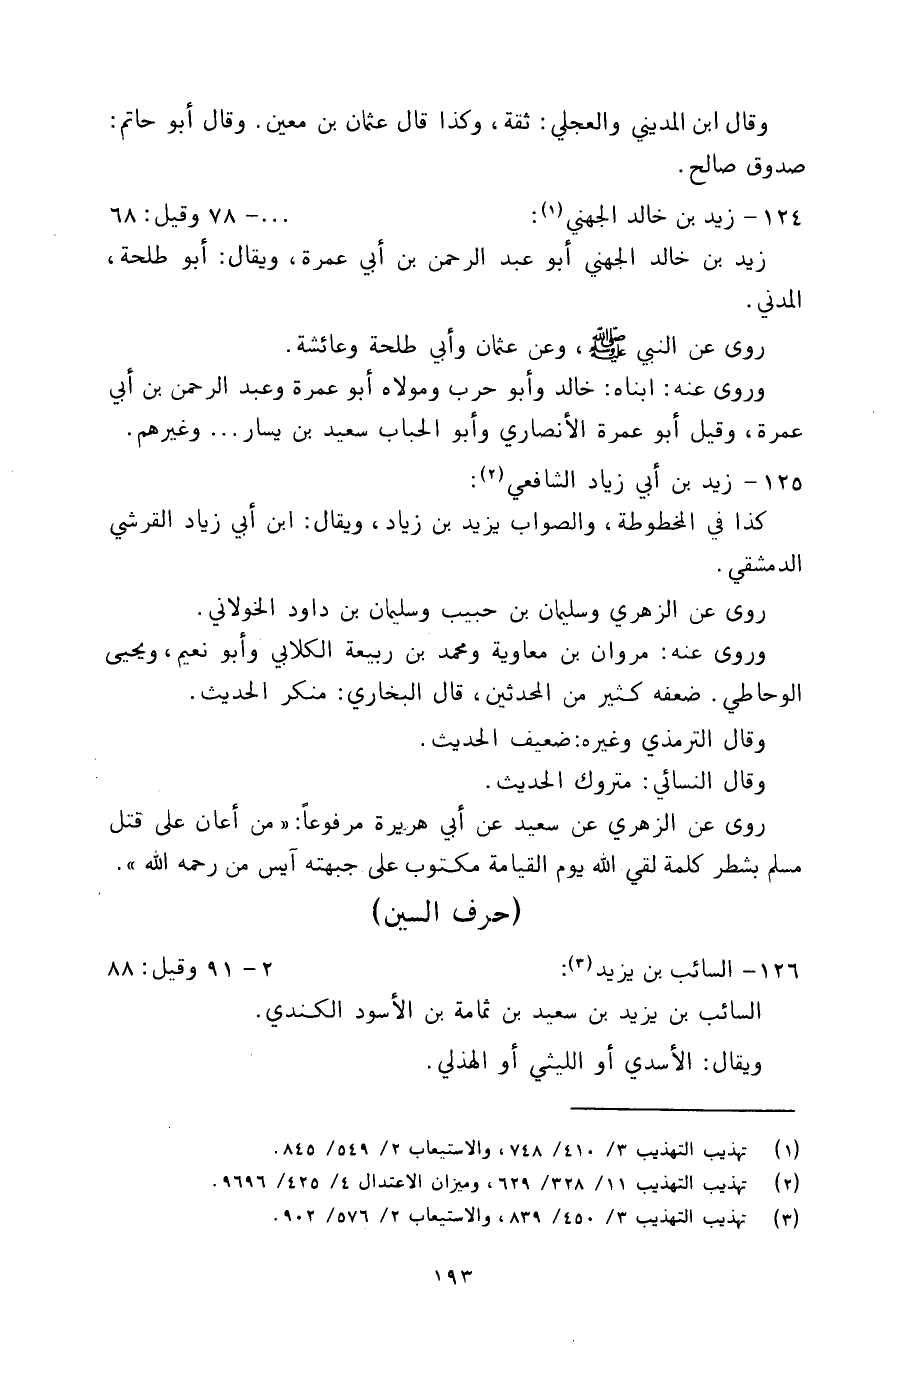 وقال ابن المديني والعجلي: ثقة، وكذا قال عثمان بن معين. وقال أبو حاتم:
صدوق صالح.
١٢٤ - زيد بن خالد الجهني(١): ...- ٧٨ وقيل: ٦٨
زيد بن خالد الجهني أبو عبد الرحمن بن أبي عمرة، ويقال: أبو طلحة،
المدني.
روى عن النبي ﷺ، وعن عثمان وأبي طلحة وعائشة.
وروى عنه: ابناه: خالد وأبو حرب ومولاه أبو عمرة وعبد الرحمن بن أبي
عمرة، وقيل أبو عمرة الأنصاري وأبو الحباب سعيد بن يسار... وغيرهم.
١٢٥ - زيد بن أبي زياد الشافعي(٢):
كذا في المخطوطة، والصواب يزيد بن زياد، ويقال: ابن أبي زياد القرشي
الدمشقي.
روى عن الزهري وسليمان بن حبيب وسليمان بن داود الخولاني.
وروى عنه: مروان بن معاوية ومحمد بن ربيعة الكلابي وأبو نعيم، ويحيى
الوحاطي. ضعفه كثير من المحدثين، قال البخاري: منكر الحديث.
وقال الترمذي وغيره: ضعيف الحديث.
وقال النسائي: متروك الحديث.
روى عن الزهري عن سعيد عن أبي هريرة مرفوعاً: «من أعان على قتل
مسلم بشطر كلمة لقي الله يوم القيامة مكتوب على جبهته آيس من رحمه الله».
(حرف السين)
١٢٦ - السائب بن يزيد(٣): ٢ - ٩١ وقيل: ٨٨
السائب بن يزيد بن سعيد بن ثمامة بن الأسود الكندي.
ويقال: الأسدي أو الليثي أو الهذلي.
(١) تهذيب التهذيب ٣/ ٤١٠/ ٧٤٨، والاستيعاب ٢/ ٥٤٩/ ٨٤٥.
(٢) تهذيب التهذيب ١١/ ٣٢٨/ ٦٢٩، وميزان الاعتدال ٤/ ٤٢٥/ ٩٦٩٦.
(٣) تهذيب التهذيب ٣/ ٤٥٠/ ٨٣٩، والاستيعاب ٢/ ٥٧٦/ ٩٠٢.
١٩٣